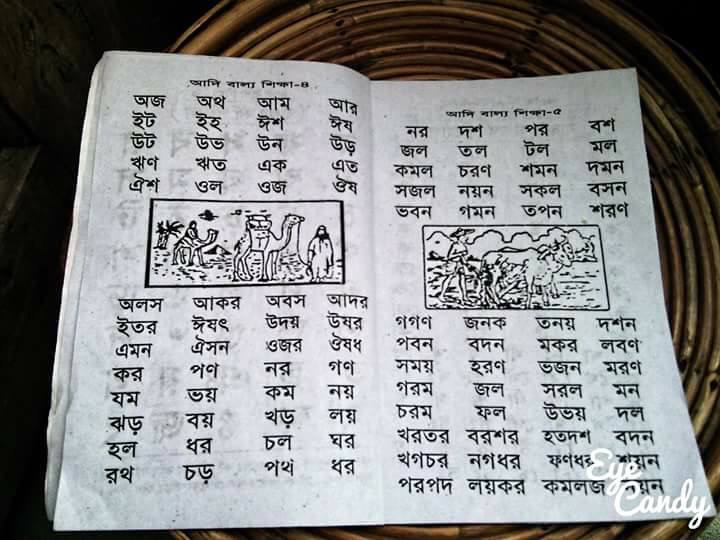 আদি বাল্য শিক্ষা-৪
অজ অথ আম আর
ইট ইহ ঈশ ঈষ
উট উভ উন উড়
ঋণ ঋত এক এত
ঐশ ওল ওজ ঔষ
অলস আকর অবস আদর
ইতর ঈষৎ উদয় উষর
এমন ঐসন ওজর ঔষধ
কর পণ নর গণ
যম ভয় কম নয়
ঝড় বয় খড় লয়
হল ধর চল ঘর
রথ চড় পথ ধর
আদি বাল্য শিক্ষা-৫
নর দশ পর বশ
জল তল টল মল
কমল চরণ শমন দমন
সজল নয়ন সকল বসন
ভবন গমন তপন শরণ
গগণ জনক তনয় দশন
পবন বদন মকর লবণ
সময় হরণ ভজন মরণ
গরম জল সরল মন
চরম ফল উভয় দল
খরতর বরশর হতদশ বদন
খগচর নগধর ফণধর শয়ন
পরপদ লয়কর কমলজ
Eye
Candy